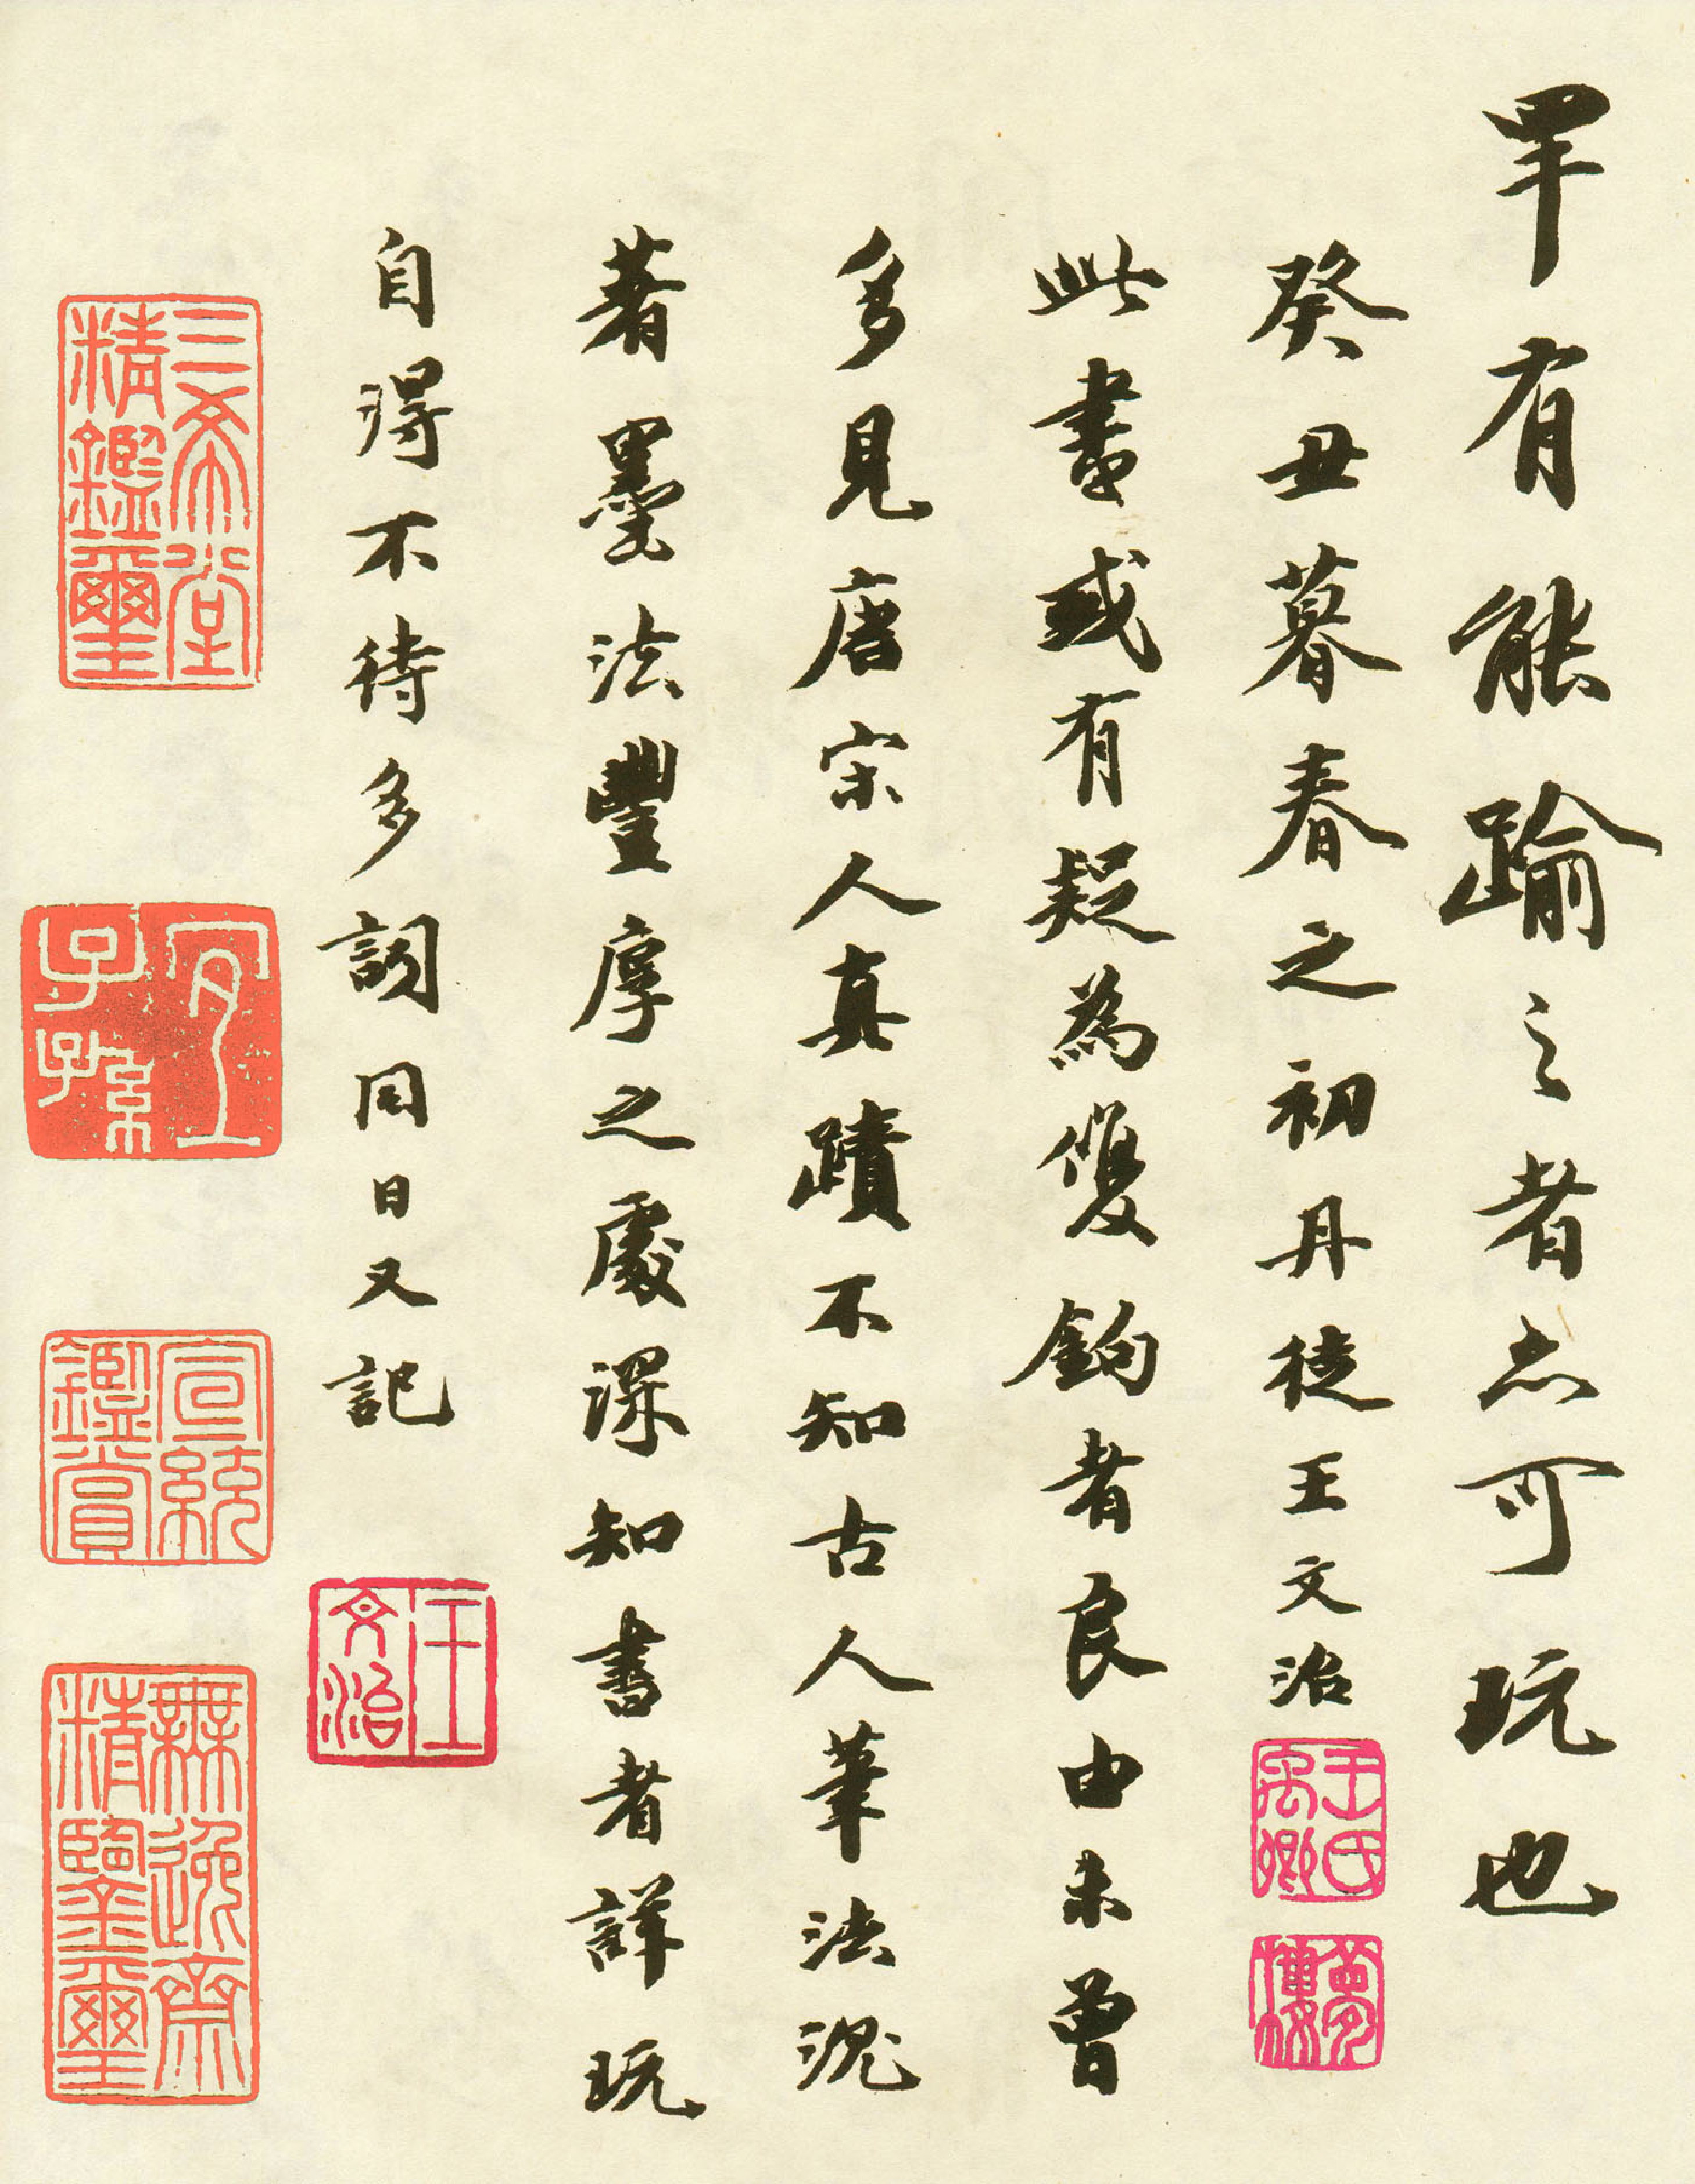 罕有能踰之者亦可玩也
癸丑暮春之初丹徒王文治
王氏禹卿
夢樓
此書或有疑為雙鈎者良由未曾
多見唐宋人真蹟不知古人筆法況
著墨法豐厚之處深知書者詳玩
自得不待多詞同日又記
王文治
三希堂精鑑璽
宜子孫
宣統鑑賞
無逸齋精鑒璽